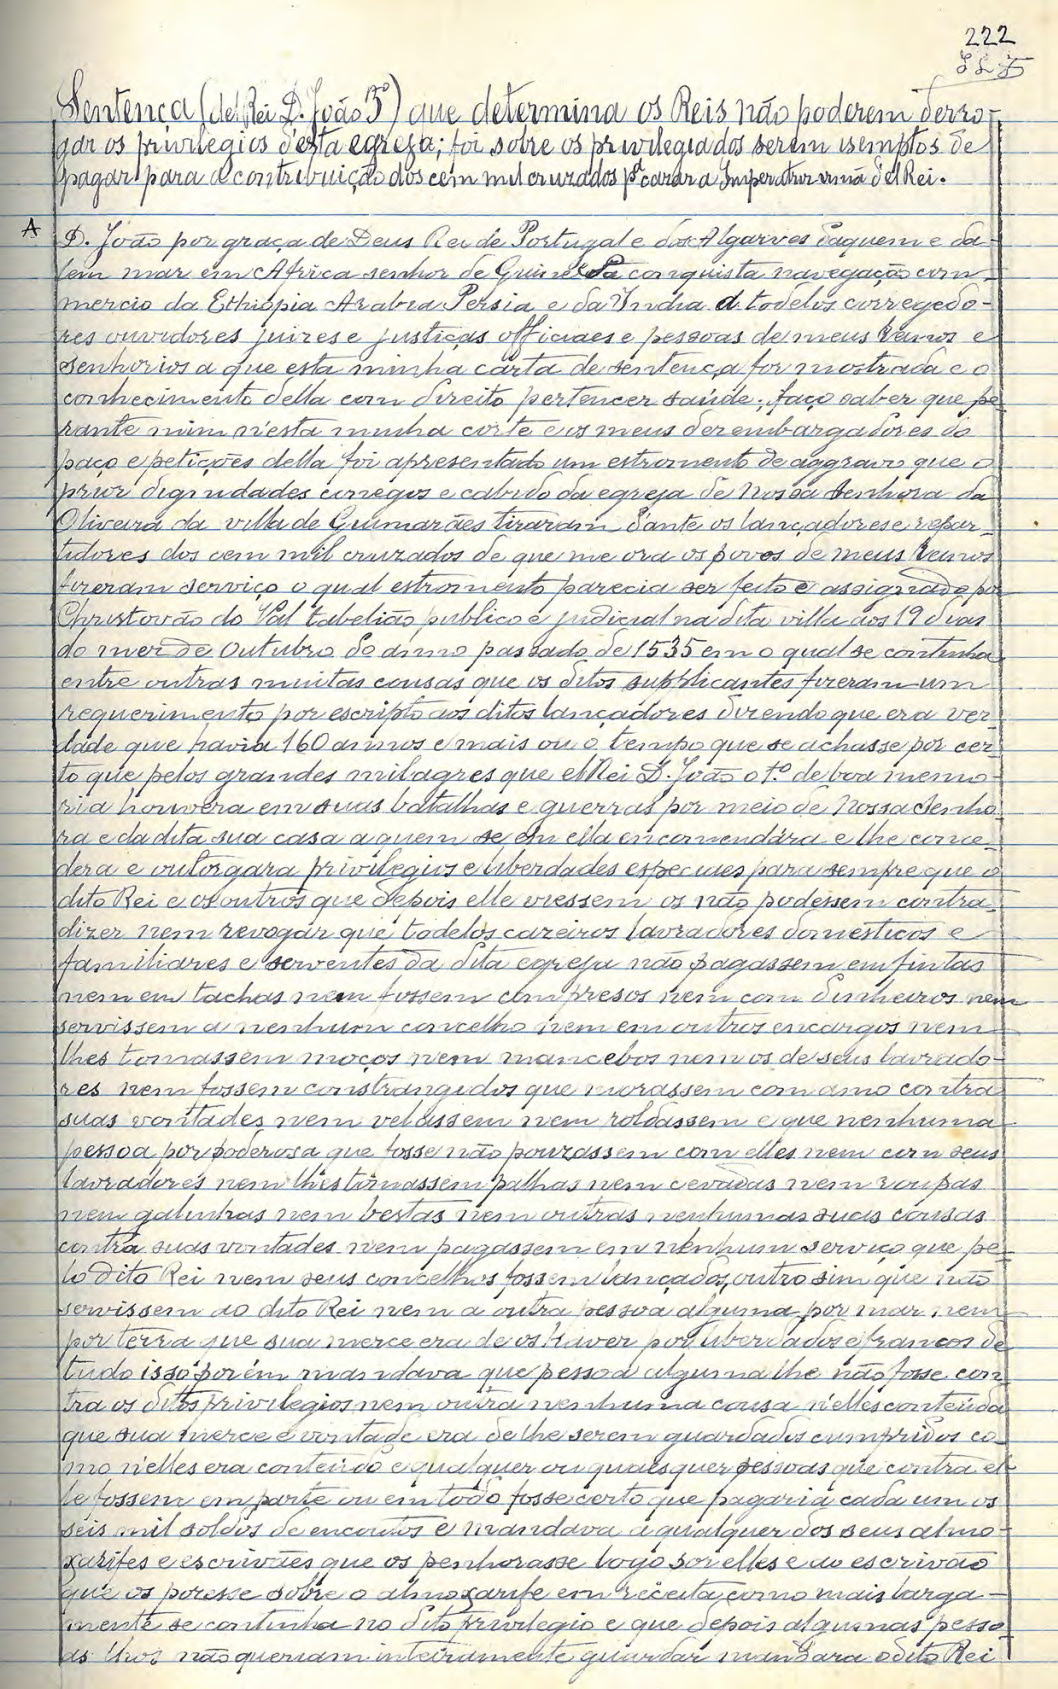 222
Sentença (del Rei D. João 3º) que determina os Reis não poderem derro-
gar os privilegios d'esta egreja; foi sobre os privilegiados serem isemptos de
pagar para a contribuição dos cem mil cruzados pª casar a Imperatriz irmã del Rei.
A
D. João por graça de Deus Rei de Portugal e dos Algarves daquem e da-
lem mar em Africa senhor de Guiné e da conquista navegação com-
mercio da Ethiopia Arabia Persia e da India a todolos corregedo-
res ouvidores juizes e justiças officiaes e pessoas de meus reinos e
senhorios a que esta minha carta de sentença for mostrada e o
conhecimento della com direito pertencer saude; faço saber que pe-
rante mim n'esta minha corte e os meus dezembargadores do
paço e petições della foi apresentado um estromento de aggravo que o
prior dignidades conegos e cabido da egreja de Nossa Senhora da
Oliveira da villa de Guimarães tiraram d'ante os lançadores e repar-
tidores dos cem mil cruzados de que me ora os povos de meus reinos
fizeram serviço o qual estromento parecia ser feito e assignado por
Christovão do Val tabelião publico e judicial na dita villa aos 19 dias
do mez de Outubro do anno passado de 1535 em o qual se continha
entre outras muitas cousas que os ditos supplicantes fizeram um
requerimento por escripto aos ditos lançadores dizendo que era ver-
dade que havia 160 annos e mais ou o tempo que se achasse por cer-
to que pelos grandes milagres que el Rei D. João o 1.º de boa memo-
ria houvera em suas batalhas e guerras por meio de Nossa Senho-
ra e da dita sua casa a quem se em ella encomendára e lhe conce-
dera e outorgara privilegios e liberdades especiaes para sempre que o
dito Rei e os outros que depois elle viessem os não podessem contra-
dizer nem revogar que todolos cazeiros lavradores domesticos e
familiares e serventes da dita egreja não pagassem em fintas
nem em tachas nem fossem com presos nem com dinheiros nem
servissem a nenhum concelho nem em outros encargos nem
lhes tomassem moços nem mancebos nem os de seus lavrado-
res nem fossem constrangidos que morassem com amo contra
suas vontades nem velassem nem roldassem e que nenhuma
pessoa por poderosa que fosse não pouzassem com elles nem com seus
lavradores nem lhes tomassem palhas nem cevadas nem roupas
nem galinhas nem bestas nem outras nenhumas suas cousas
contra suas vontades nem pagassem em nenhum serviço que pe-
lo dito Rei nem seus concelhos fossem lançados, outro sim que não
servissem ao dito Rei nem a outra pessoa alguma por mar nem
por terra que sua merce era de os haver por liberdados e francos de
tudo isso porém mandava que pessoa alguma lhe não fosse con-
tra os ditos privilegios nem outra nenhuma cousa n'elles conteúda
que sua merce e vontade era de lhe serem guardados cumpridos co-
mo n'elles era conteúdo e qualquer ou quaesquer pessoas que contra el-
le fossem em parte ou em todo fosse certo que pagaria cada um os
seis mil soldos de encoutos e mandava a qualquer dos seus almo-
xarifes e escrivães que os penhorasse logo por elles e ao escrivão
que os pozesse sobre o almoxarife em receita como mais larga-
mente se continha no dito privilegio e que depois algumas pesso-
as lhos não queriam inteiramente guardar mandara o dito Rei